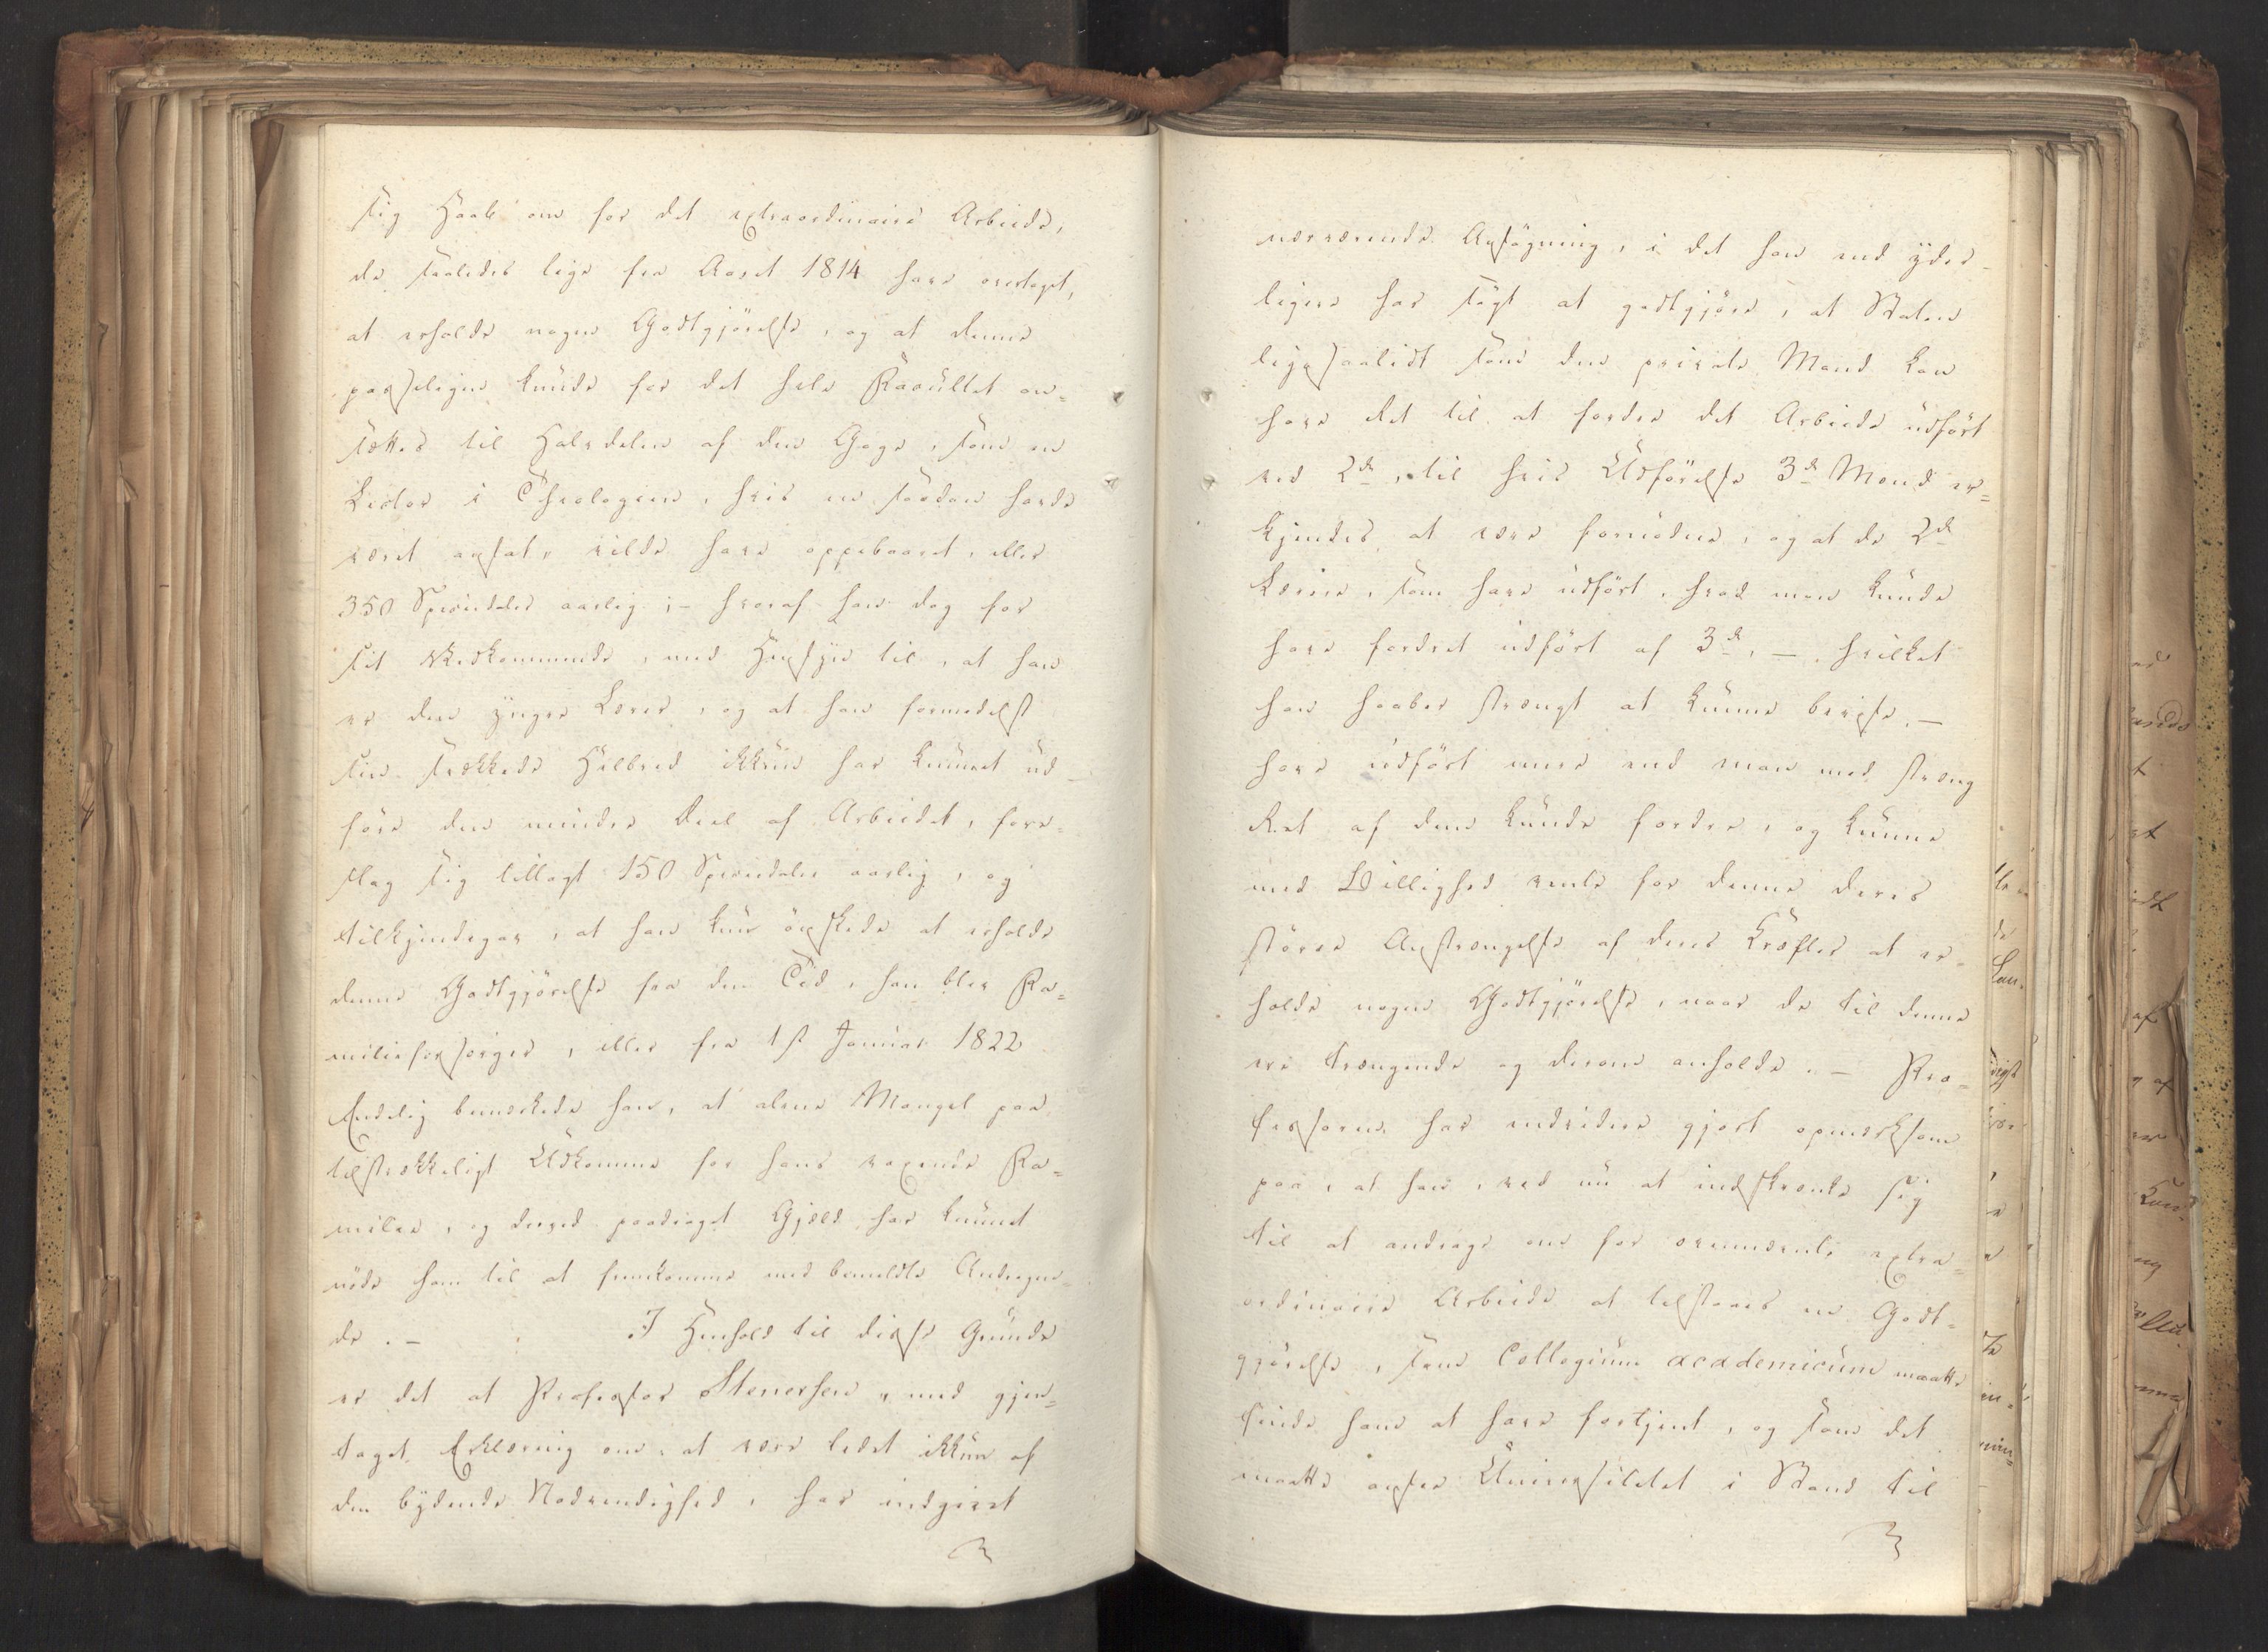 sig Haab om for det extraordinaire Arbeide,
de saaledes lige fra Aaret 1814 have overtaget,
at erholde nogen Godtgjörelse, og at denne
passeligen kunde for det hele Facultet an=
sættes til Halvdelen af den Gage, som en
Lector i Theologien, hvis en saadan havde
været ansat, vilde have oppebaaret, eller
350 Speciedaler aarlig; – hvoraf han dog for
sit Vedkommende, med Hensyn til, at han
er den yngre Lærer, og at han formedelst
sin svækkede Helbred ikkun har kunnet ud-
före den mindre Deel af Arbeidet, fore=
slog sig tillagt 150 Speciedaler aarlig, og
tilkjendegav, at han kun önskede at erholde
denne Godtgjörelse fra den Tid, han blev Fa=
milieforsörger, eller fra 1st Januar 1822
Endelig bemærkede han, at alene Mangel paa
tilstrækkeligt Udkomme for hans voxende Fa=
milie, og derved paadraget Gjeld har kunnet
nöde ham til at fremkomme med bemeldte Andragen=
de. – I Henhold til disse Grunde
er det at Professor Stenersen, med gjen=
taget Erklæring om, at være ledet ikkun af
den bydende Nödvendighed, har indgivet
nærværende Ansögning, i det han end yder-
ligere har sögt at godtgjöre, at Staten
ligesaalidt som den private Mand kan
have Ret til at fordre det Arbeide udfört
ved 2de, til hvis Udförelse 3de Mænd er=
kjendes at være fornödne, og at de 2de
Lærere, som have udfört, hvad man kunde
have fordret udfört af 3de, – hvilket
han haaber strængt at kunne bevise, –
have udfört mere end man med stræng
Ret af dem kunde fordre, og kunne
med Billighed vente for denne deres
större Anstrængelse af deres Kræfter at er=
holde nogen Godtgjörelse, naar de til denne
ere trængende og derom anholde. – Pro=
fessoren har endvidere gjort opmærksom
paa, at han, ved nu at indskrænke sig
til at andrage om for ovennævnte extra=
ordinaire Arbeide at tilstaaes en Godt=
gjörelse, som Collegium academicum maatte
finde ham at have fortjent, og som det
maatte ansee Universitetet i Stand til